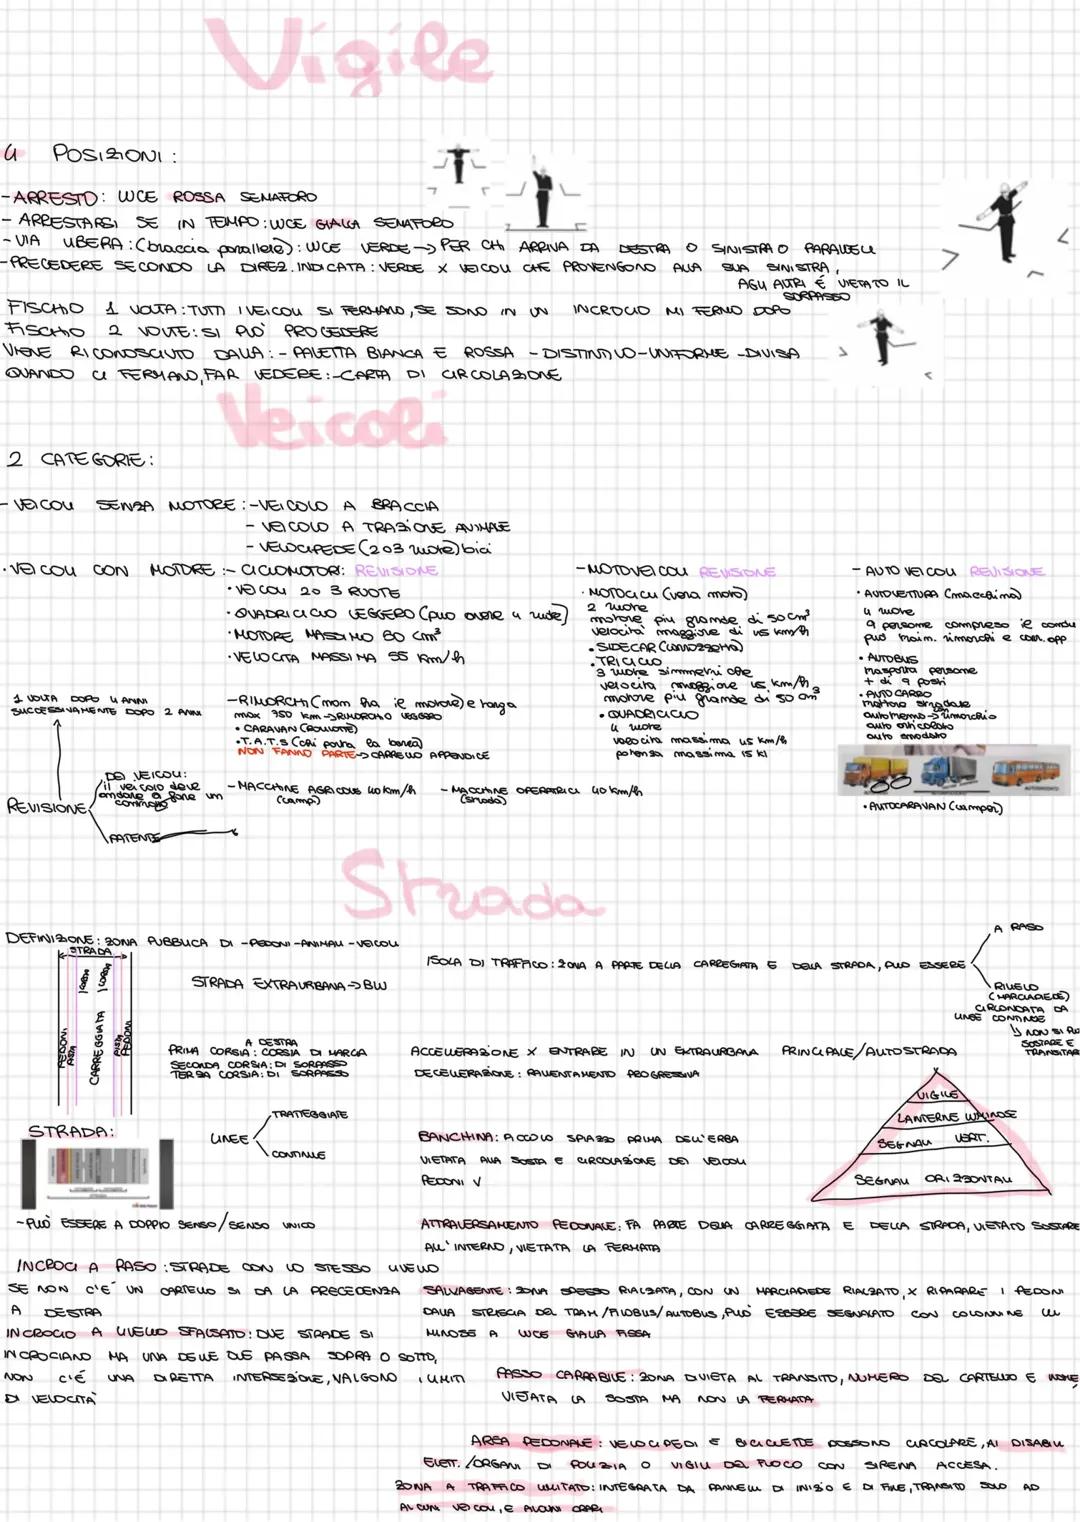 Vigile
4 POSIZIONI:
-ARRESTO: LUCE ROSSA SEMAFORO
- ARRESTARSI SE IN TEMPO: LUCE GIALLA SEMAFORO
- VIA LIBERA: (braccia parallele): LUCE VERDE -> PER CHI ARRIVA DA DESTRA O SINISTRA O PARALLELI
-PRECEDERE SECONDO LA DIREZ. INDICATA: VERDE X VEICOLI CHE PROVENGONO ALLA SUA SINISTRA,
AGLI ALTRI É VIETATO IL
SORPASSO
FISCHIO 1 VOLTA: TUTTI I VEICOLI SI FERMANO, SE SONO IN UN INCROCIO MI FERMO DOPO
FISCHIO 2 VOLTE: SI PUO' PROCEDERE
VIENE RICONOSCIUTO DALLA: - PALETTA BIANCA E ROSSA - DISTINTIVO - UNIFORME - DIVISA
QUANDO CI FERMANO, FAR VEDERE: - CARTA DI CIRCOLAZIONE
Veicoli
2 CATEGORIE:
- VEICOLI SENZA MOTORE: - VEICOLO A BRACCIA
- VEICOLO A TRAZIONE ANIMALE
- VELOCIPEDE (2 O 3 ruote) bici
· VEICOLI CON MOTORE: - CICLOMOTORI: REVISIONE
· VEICOLI 2 O 3 RUOTE
· QUADRICICLO LEGGERO (può avere 4 ruote)
· MOTORE MASSIMO 50 cm³
· VELOCITA MASSIMA 55 Km/h
- RIMORCHI (non ha il motore) e targa
max 750 km -> RIMORCHIO LEGGERO
· CARAVAN (ROULOTTE)
· T.A.T.S (chi porta la barca)
NON FANNO PARTE -> CARRELLO APPENDICE
- MACCHINE AGRICOLE 40 km/h
(campi)
- MACCHINE OPERATRICI 40 km/h
(strada)
- MOTOVEICOLI REVISIONE
· MOTOCICLI (vera moto)
2 ruote
motore più grande di 50 cm³
velocità maggiore di 45 km/h
· SIDECAR (carrozzetta)
· TRICICLO
3 ruote simmetriche
velocità maggiore 45 km/h
motore più grande di 50 cm³
· QUADRICICLO
4 ruote
velocità massima 45 km/h
potenza massima 15 kl
- AUTOVEICOLI REVISIONE
· AUTOVETTURA (macchina)
4 ruote
9 persone compreso il condu
può train. rimorchi e carr. app
· AUTOBUS
trasporta persone
+ di 9 posti
· AUTOCARRO
trattore stradale
autotreno -> rimorchio
auto articolato
auto snodato
· AUTOCARAVAN (camper)
1 VOLTA DOPO 4 ANNI
SUCCESSIVAMENTE DOPO 2 ANNI
REVISIONE
DEI VEICOLI:
il veicolo deve
andare a fare un
controllo
PATENTE
Strada
DEFINIZIONE: ZONA PUBBLICA DI - PEDONI - ANIMALI - VEICOLI
STRADA
PEDONI
PISTA
CORSIA
CORSIA
CARREGGIATA
PISTA
PEDONI
STRADA EXTRAURBANA -> BLU
A DESTRA
PRIMA CORSIA: CORSIA DI MARCIA
SECONDA CORSIA: DI SORPASSO
TERZA CORSIA: DI SORPASSO
LINEE
TRATTEGGIATE
CONTINUE
STRADA:
- PUO' ESSERE A DOPPIO SENSO/SENSO UNICO
INCROCI A RASO: STRADE CON LO STESSO LIVELLO
SE NON C'E' UN CARTELLO SI DA LA PRECEDENZA
A DESTRA
INCROCIO A LIVELLO SFALSATO: DUE STRADE SI
INCROCIANO MA UNA DELLE DUE PASSA SOPRA O SOTTO,
NON C'É UNA DIRETTA INTERSEZIONE, VALGONO I LIMITI
DI VELOCITA'
ISOLA DI TRAFFICO: ZONA A PARTE DELLA CARREGGIATA E DELLA STRADA, PUO ESSERE
A RASO
RILIEVO
(MARCIAPIEDE)
CIRCONDATA DA
LINEE CONTINUE
NON SI PUO
SOSTARE E
TRANSITAR
ACCELLERAZIONE X ENTRARE IN UN EXTRAURBANA PRINCIPALE/AUTOSTRADA
DECELLERAZIONE: RALLENTAMENTO PROGRESSIVA
VIGILE
LANTERNE LUMINOSE
SEGNALI VERT.
SEGNALI ORIZZONTALI
BANCHINA: PICCOLO SPIAZZO PRIMA DELL'ERBA
VIETATA ALLA SOSTA E CIRCOLAZIONE DEI VEICOLI
PEDONI V
ATTRAVERSAMENTO PEDONALE: FA PARTE DELLA CARREGGIATA E DELLA STRADA, VIETATO SOSTARE
ALL'INTERNO, VIETATA LA FERMATA
SALVAGENTE: ZONA SPESSO RIALZATA, CON UN MARCIAPIEDE RIALZATO, X RIPARARE I PEDONI
DALLA STRISCIA DEL TRAM/FILOBUS/AUTOBUS, PUO' ESSERE SEGNALATO CON COLONNINE LU
MINOSE A LUCE GIALLA FISSA
PASSO CARRABILE: ZONA DIVIETA AL TRANSITO, NUMERO DEL CARTELLO E NOME,
VIETATA LA SOSTA MA NON LA FERMATA
AREA PEDONALE: VELOCIPEDI E BICICLETTE POSSONO CIRCOLARE, AI DISABILI
ELETT./ORGANI DI POLIZIA O VIGILI DEL FUOCO CON SIRENA ACCESA.
ZONA A TRAFFICO LIMITATO: INTEGRATA DA PANNELLI DI INIZIO E DI FINE, TRANSITO SOLO AD
ALCUNI VEICOLI, E ALCUNI ORARI